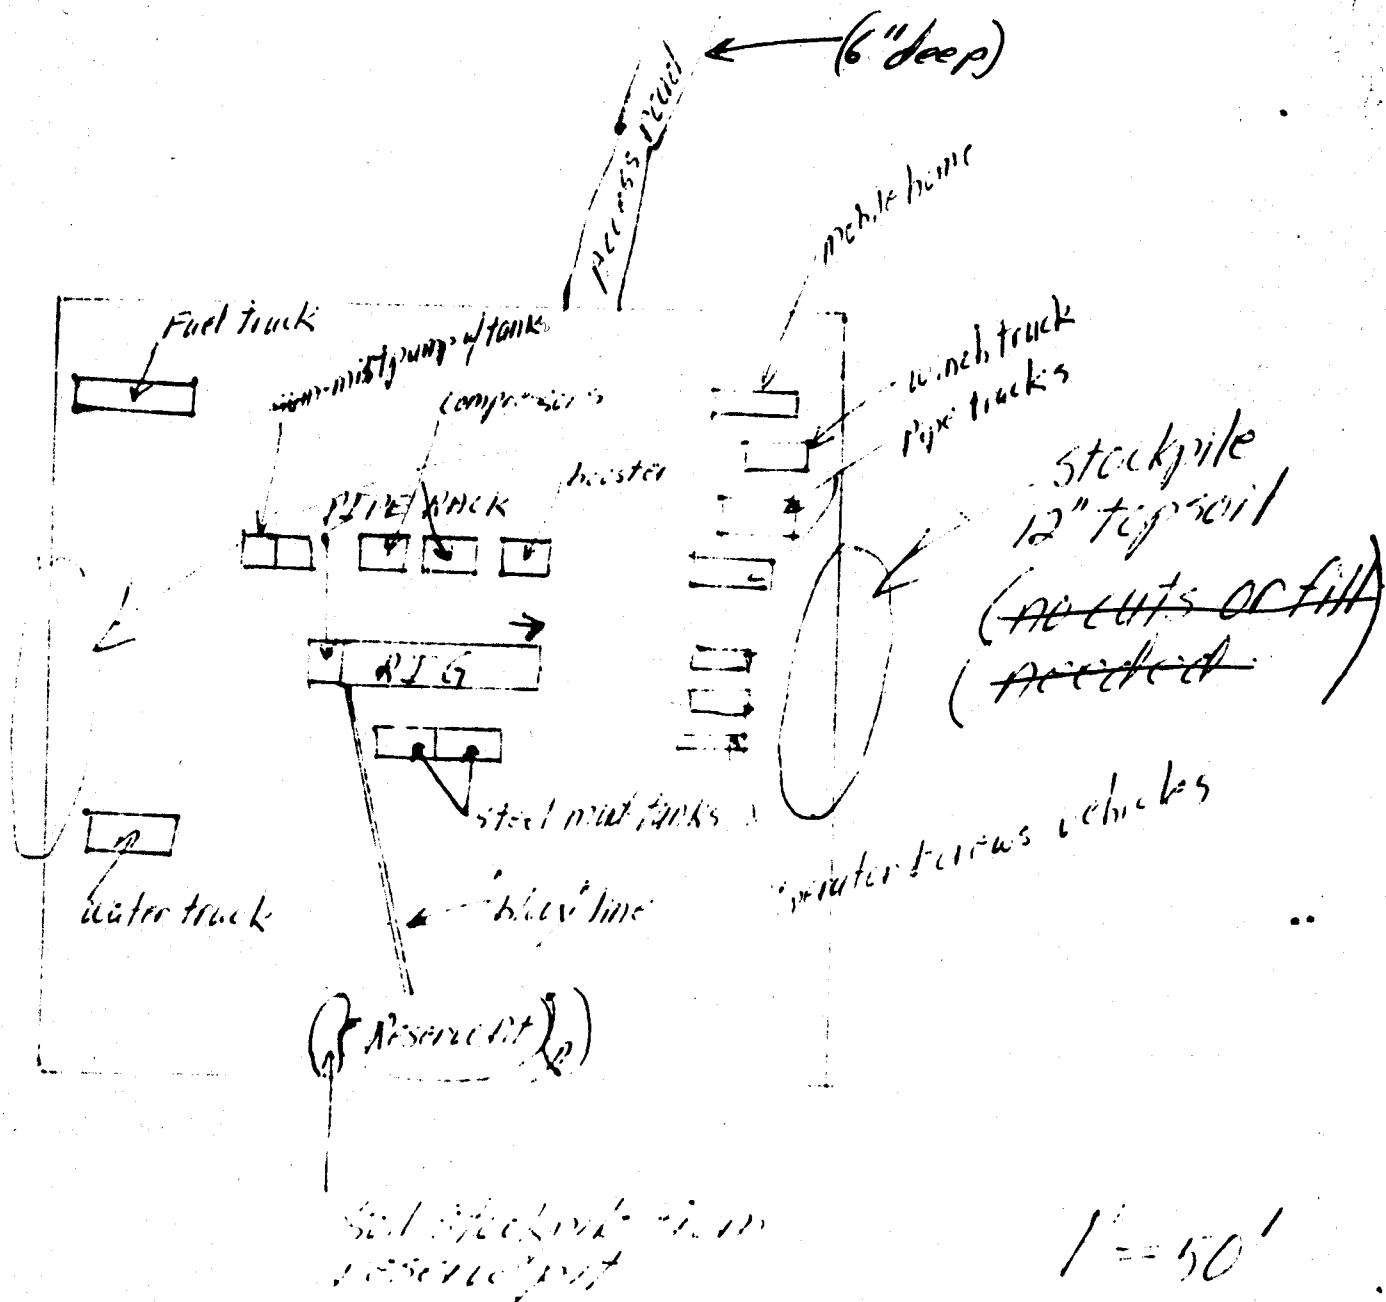 (6" deep)
access road
mobile home
Fuel truck
mist pump w/tank
compressors
winch truck
Pipe trucks
booster
PIPE RACK
stockpile
12" topsoil
(no cuts or fill)
(needed
RIG
steel mud tanks
crews vehicles
water truck
"blooy" line
Reserve Pit
Soil stockpile from
reserve pit
1" = 50'